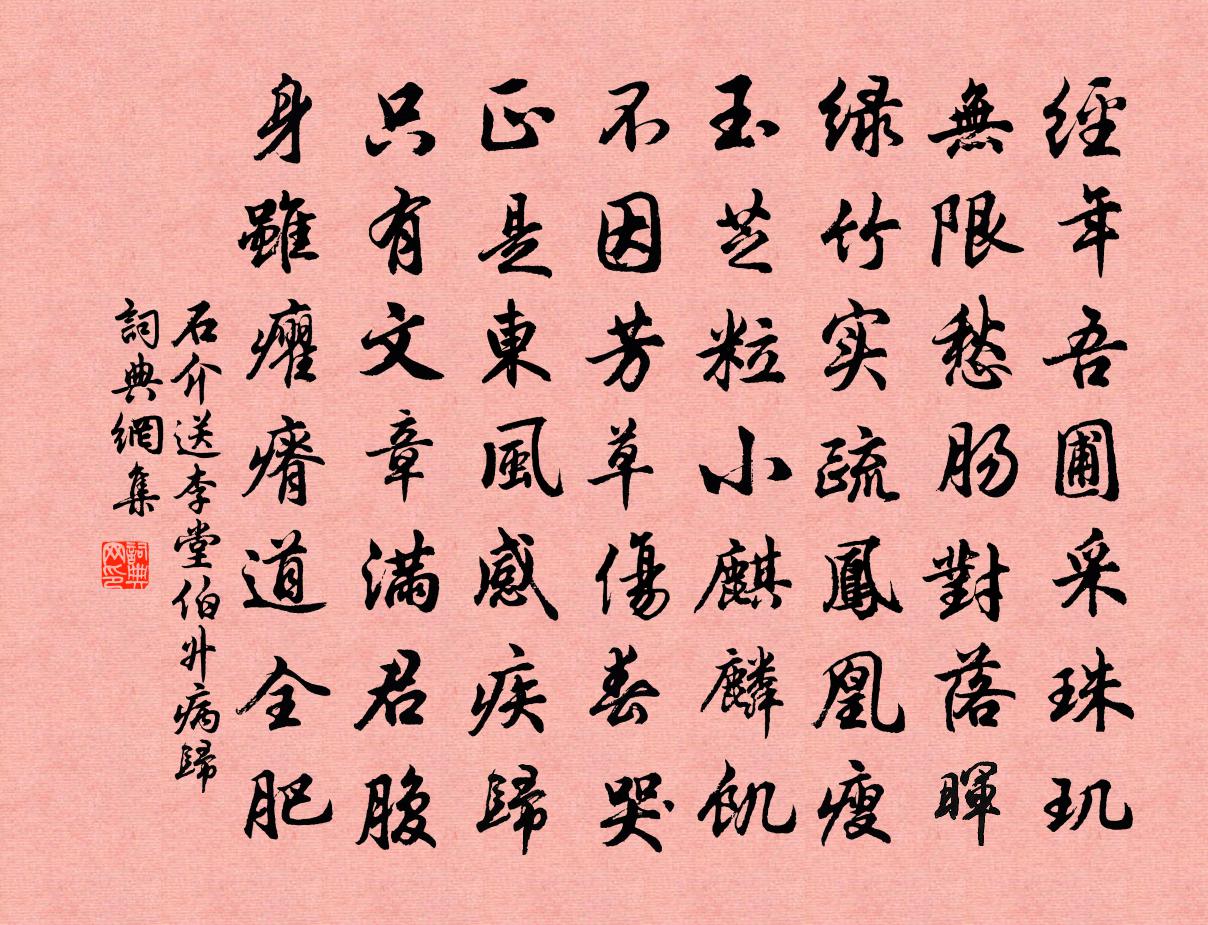 經年吾圃采珠玑
無限愁肠對落暉
绿竹实疏鳳凰瘦
玉芝粒小麒麟飢
不因芳草傷春哭
正是東風感疾歸
只有文章滿君腹
身雖癯瘠道全肥
石介送李堂伯升病歸
詞典網集
詞典网印